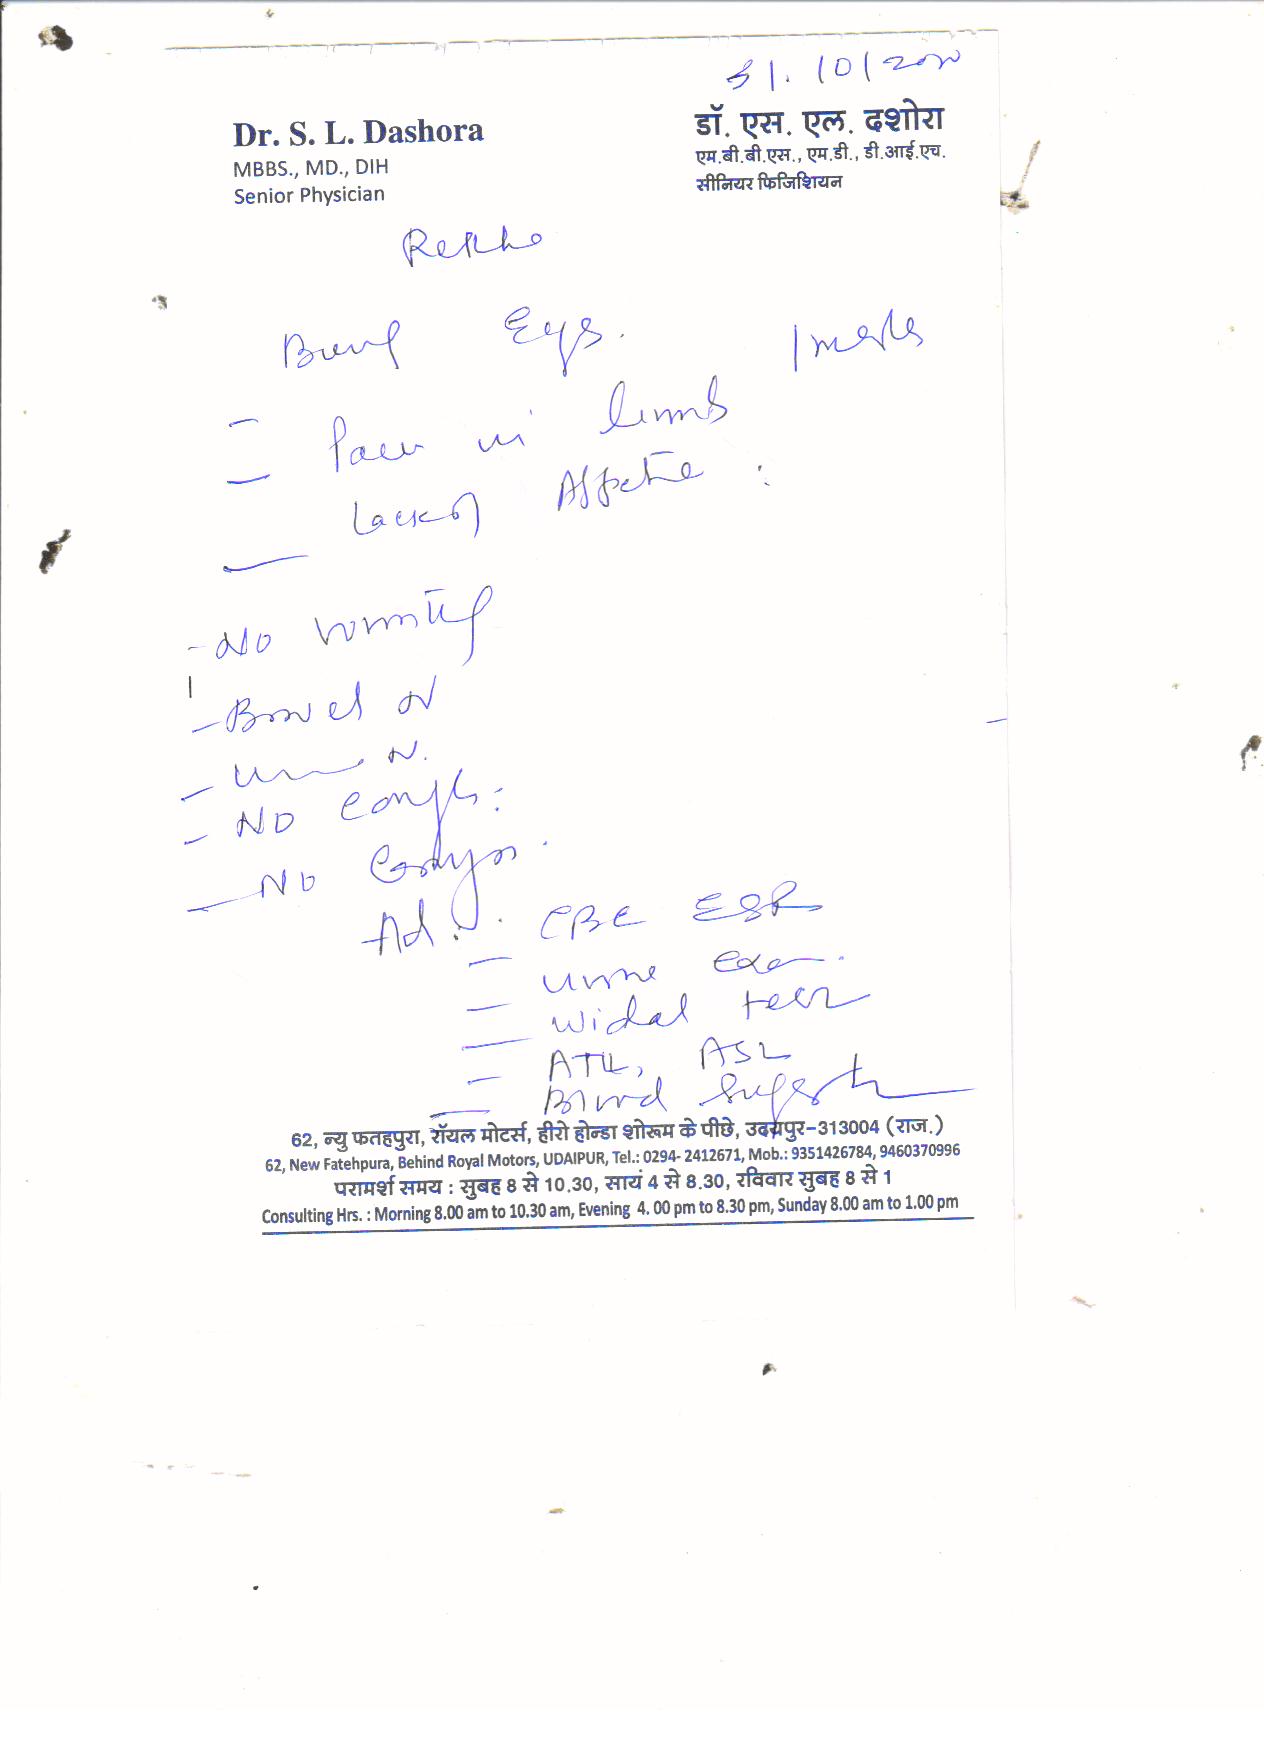 31.10/20
Dr. S. L. Dashora
MBBS., MD., DIH
Senior Physician
डॉ. एस. एल. दशोरा
एम.बी.बी.एस., एम.डी., डी.आई.एच.
सीनियर फिजिशियन
Rekha
Burng Eyes. 1 month
Pain in limbs
Lack of Appetite :
- No vomiting
- Bowel N
- Urine N.
- No cough :
- No
Ad :. CBC ESR
Urine Exam.
Widal test
ASL
Blood Sugar
62, न्यु फतहपुरा, रॉयल मोटर्स, हीरो होन्डा शोरूम के पीछे, उदयपुर–313004 (राज.)
62, New Fatehpura, Behind Royal Motors, UDAIPUR, Tel.: 0294- 2412671, Mob.: 9351426784, 9460370996
परामर्श समय : सुबह 8 से 10.30, सायं 4 से 8.30, रविवार सुबह 8 से 1
Consulting Hrs. : Morning 8.00 am to 10.30 am, Evening 4. 00 pm to 8.30 pm, Sunday 8.00 am to 1.00 pm